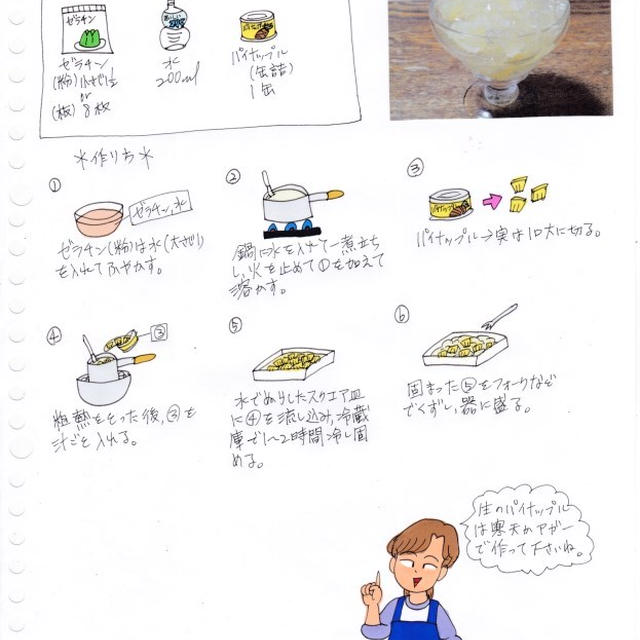 ゼラチン
ゼラチン
(粉)小さじ1
or
(板)8枚
水
200ml
パイナップル
(缶詰)
1缶
*作り方*
①
ゼラチン、水
ゼラチン(粉)は水(大さじ1)
を入れてふやかす。
②
鍋に水を入れて一煮立ち
し、火を止めて①を加えて
溶かす。
③
パイナップル→実は1口大に切る。
④
③
粗熱をとった後、③を
汁ごと入れる。
⑤
水でぬらしたスクエア皿
に④を流し込み、冷蔵
庫で1〜2時間冷し固
める。
⑥
固まった⑤をフォークなど
でくずし、器に盛る。
生のパイナップル
は寒天かアガー
で作って下さいね。